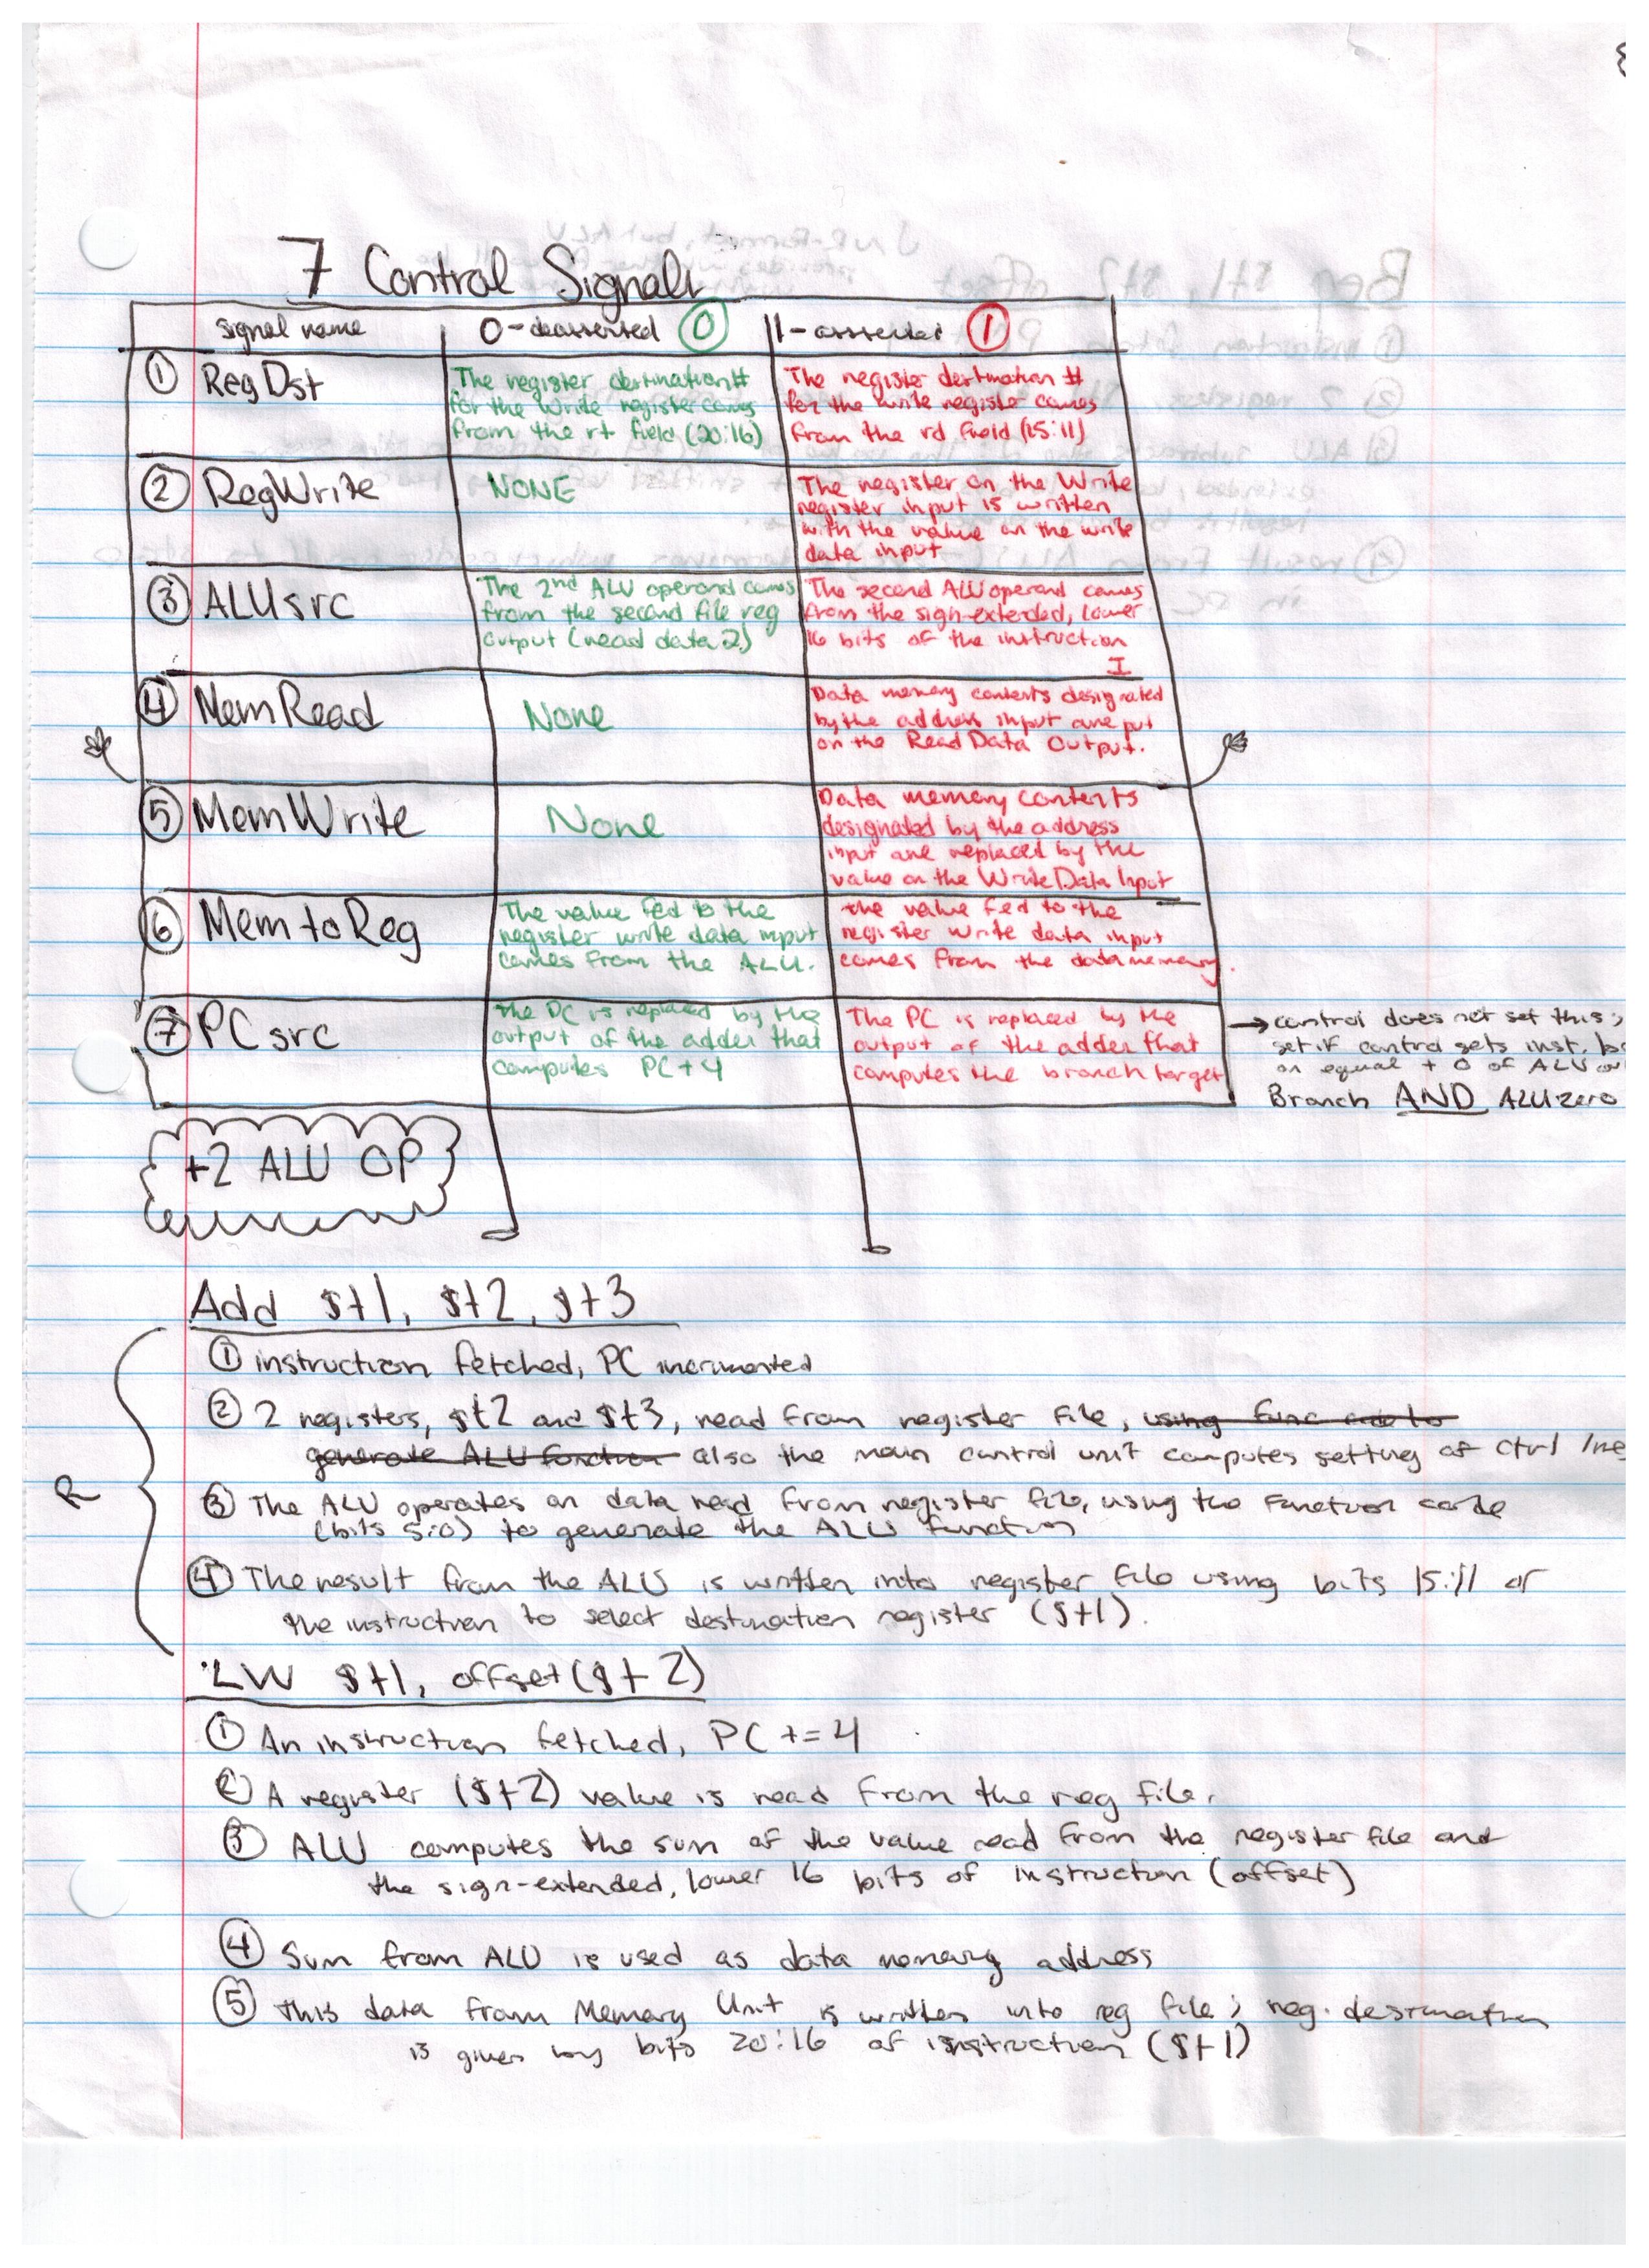 7 Control Signals
signal name 0-deasserted 0 1-asserted 1
1 RegDst
The register destination #
for the Write register comes
from the rt field (20:16)
The register destination #
for the write register comes
from the rd field (15:11)
2 RegWrite
NONE
The register on the Write
register input is written
with the value on the write
data input
3 ALUsrc
The 2nd ALU operand comes
from the second file reg
output (read data 2)
The second ALU operand comes
from the sign-extended, lower
16 bits of the instruction
I
4 MemRead
None
Data memory contents designated
by the address input are put
on the Read Data Output.
5 MemWrite
None
Data memory contents
designated by the address
input are replaced by the
value on the Write Data Input
6 MemtoReg
The value fed to the
register write data input
comes from the ALU.
the value fed to the
register write data input
comes from the data memory.
7 PCsrc
the PC is replaced by the
output of the adder that
computes PC+4
The PC is replaced by the
output of the adder that
computes the branch target
→ control does not set this;
set if control gets inst.
on equal + 0 of ALU
Branch AND ALU zero
+2 ALU OP
Add $t1, $t2, $t3
1 instruction fetched, PC incremented
2 2 registers, $t2 and $t3, read from register file, using func code to
generate ALU function also the main control unit computes setting of ctrl
R
3 The ALU operates on data read from register file, using the function code
(bits 5:0) to generate the ALU function
4 The result from the ALU is written into register file using bits 15:11 of
the instruction to select destination register ($t1).
LW $t1, offset($t2)
1 An instruction fetched, PC += 4
2 A register ($t2) value is read from the reg file.
3 ALU computes the sum of the value read from the register file and
the sign-extended, lower 16 bits of instruction (offset)
4 Sum from ALU is used as data memory address
5 this data from Memory Unit is written into reg file; reg. destination
is given by bits 20:16 of instruction ($t1)